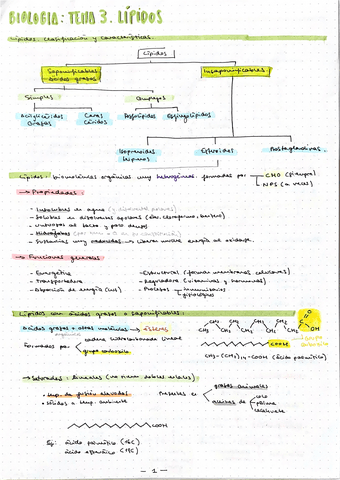 BIOLOGIA: TEMA 3. LÍPIDOS
Lípidos. Clasificación y características.
Lípidos
Saponificables Insaponificables
ácidos grasos
Simples Complejos
Acilglicéridos Ceras Fosfolípidos Esfingolípidos
Grasas Céridos
Isoprenoides Esteroides Prostaglandinas
terpenos
Lípidos: biomoléculas orgánicas muy heterogéneas formadas por CHO (siempre)
NPS (a veces)
→ Propiedades
- Insolubles en agua
- Solubles en disolventes apolares (éter, cloroformo, benceno)
- Untuosos al tacto y poco densos
- Hidrófobos
- Sustancias muy reducidas → Liberan mucha energía al oxidarse.
→ Funciones generales
- Energética - Estructural (forman membranas celulares)
- Transportadora - Reguladora (vitaminas y hormonas)
- Absorción de energía (luz) - Procesos inmunitarios
fisiológicos
Lípidos con ácidos grasos o saponificables:
Ácidos grasos + otras moléculas → ésteres
Formados por cadena hidrocarbonada lineal
grupo carboxilo
CH₃ CH₂ CH₂ CH₂ CH₂ CH₂ C O OH
COOH grupo
CH₃-(CH₂)₁₄-COOH (ácido palmítico)
→ Saturados: lineales (no tienen dobles enlaces)
• temp. de fusión elevadas Presentes en grasas animales
• sólidos a temp. ambiente aceites de coco
palma
cacahuete
COOH
Ej: ácido palmítico (16C)
ácido esteárico (18C)
- 1 -